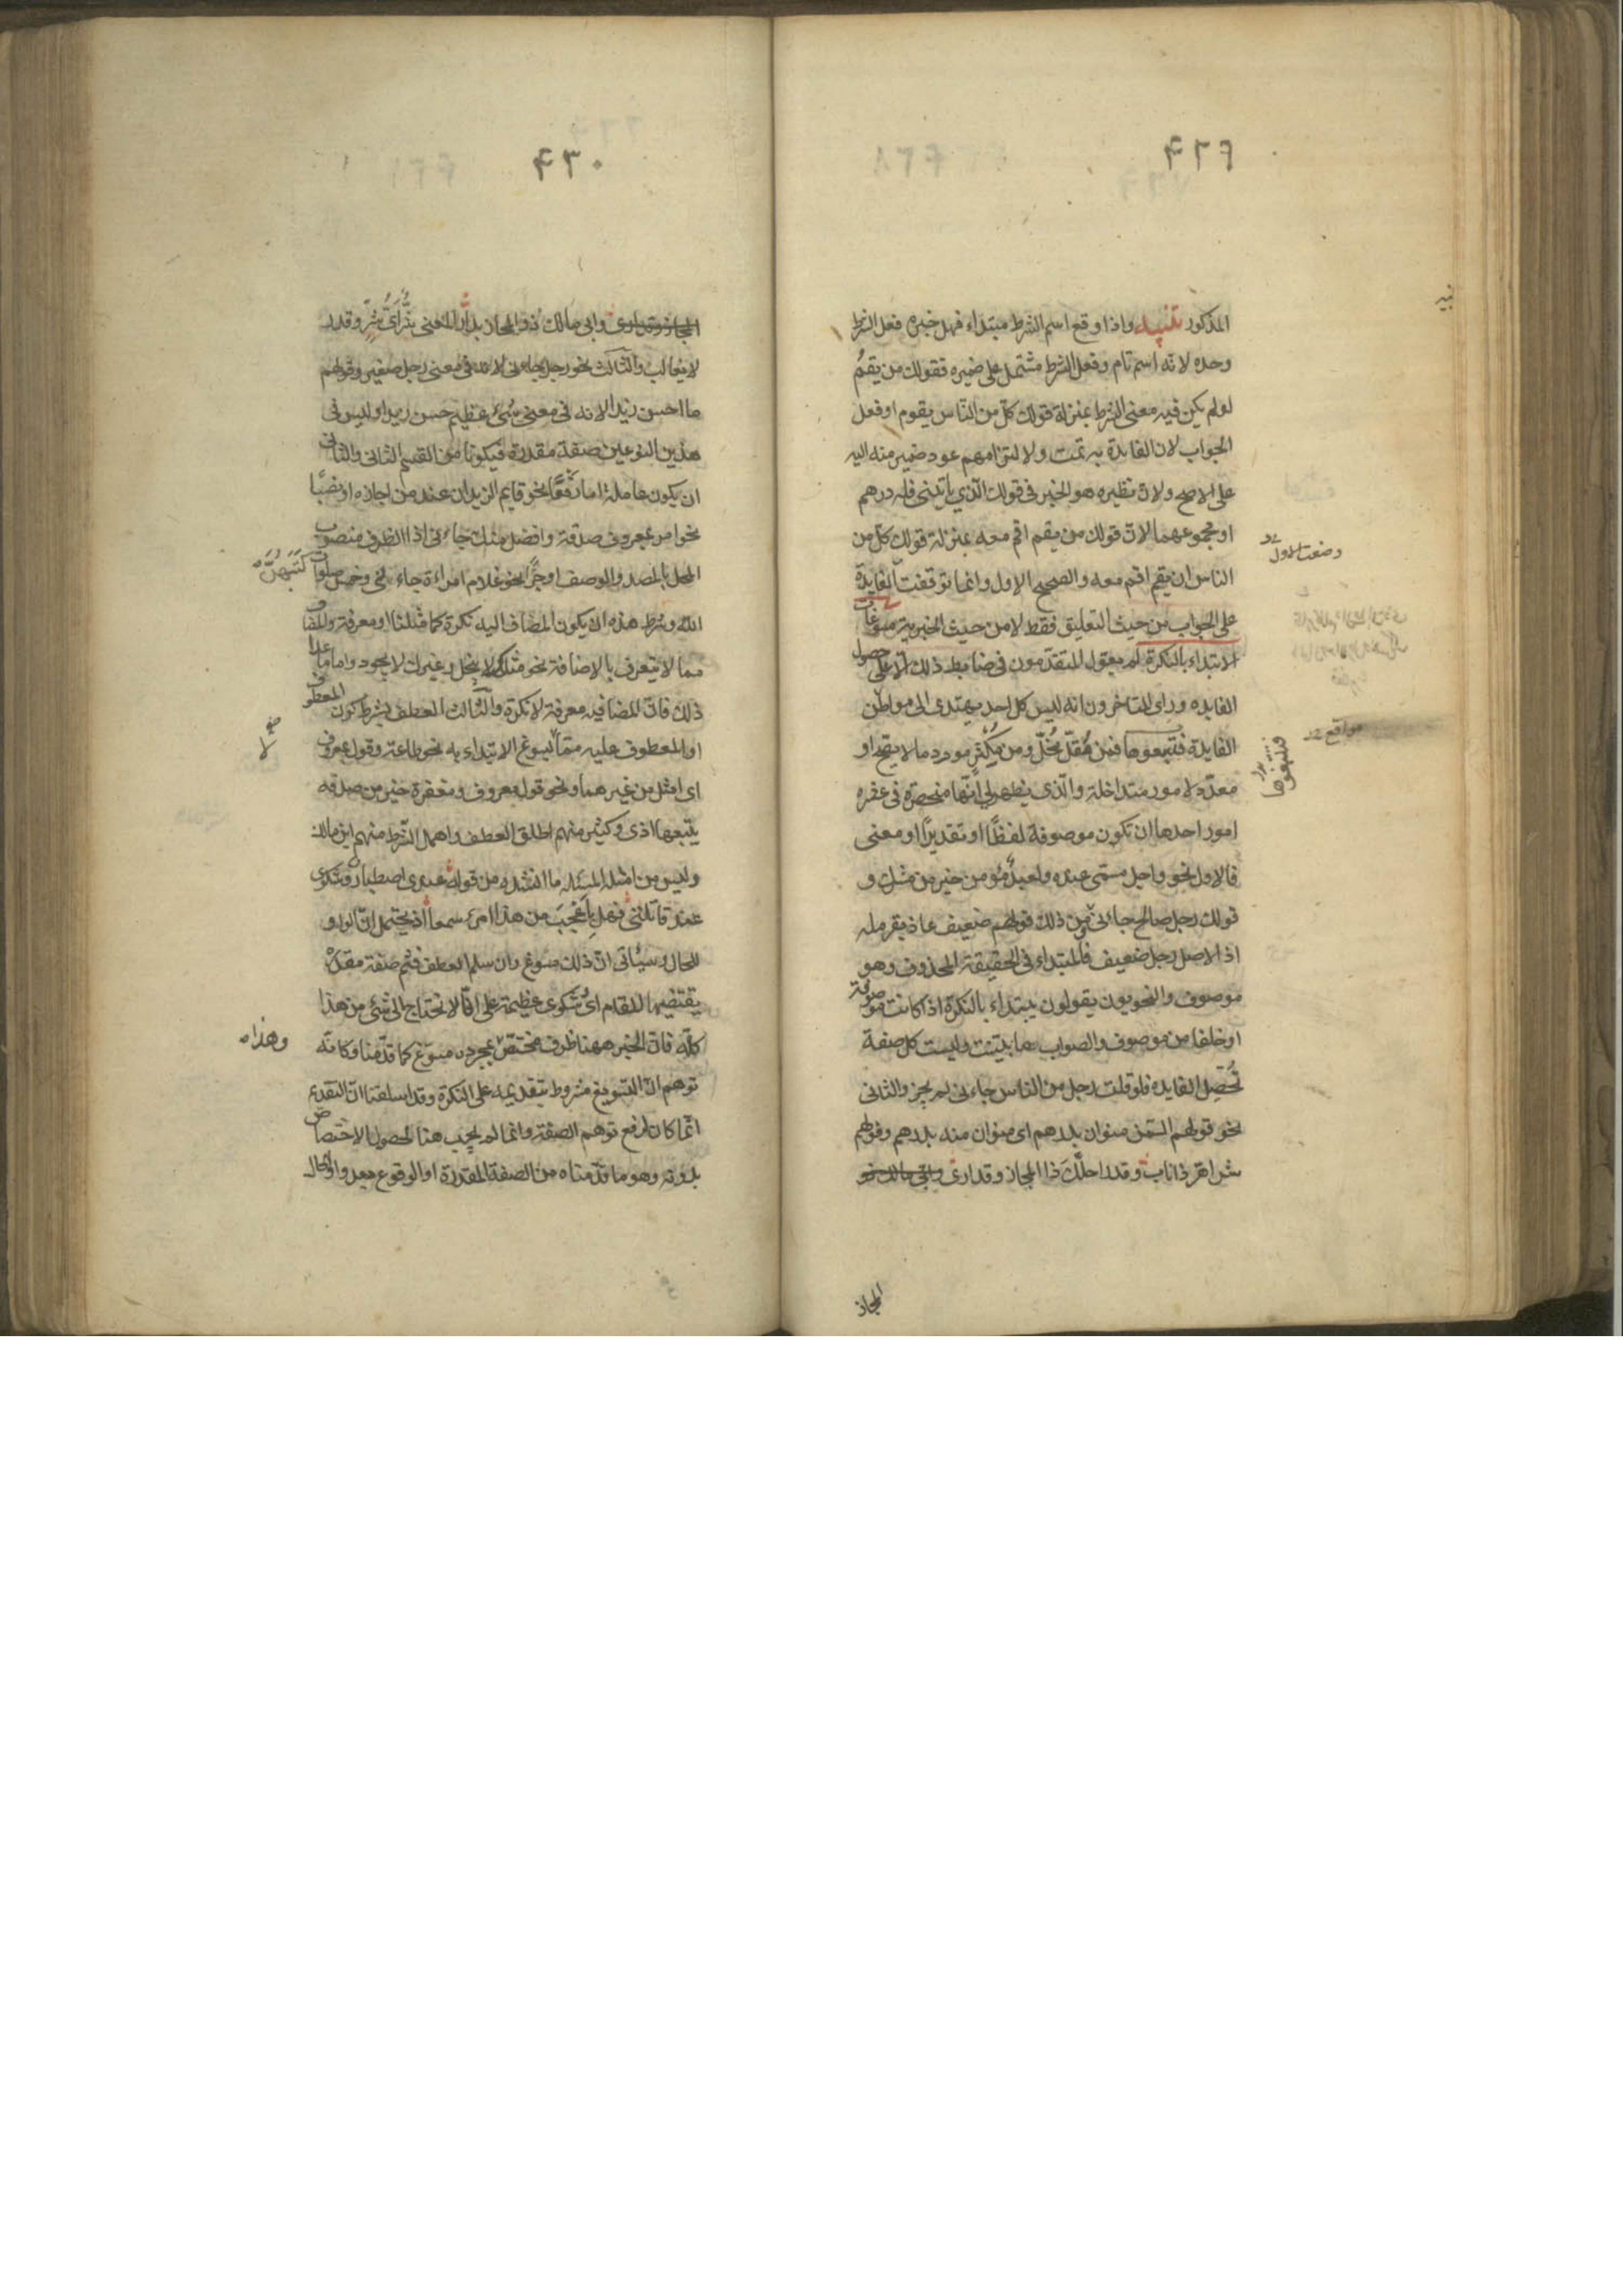 ٤٢٩
المذكور تنبيه واذا وقع اسم الشرط مبتداء فهل خبره فعل الشرط
وحده لانه اسم تام وفعل الشرط مشتمل على ضميره فقولك من يقم
لو لم يكن فيه معنى الشرط بمنزلة قولك كل من الناس يقوم او فعل
الجواب لان الفايدة به تمت ولالتزامهم عود ضمير منه اليه
على الاصح ولان نظيره هو الخبر في قولك الذي ياتيني فله درهم
او مجموعهما لان قولك من يقم اقم معه بمنزلة قولك كل من
الناس ان يقم اقم معه والصحيح الاول وانما توقفت الفايدة
على الجواب من حيث التعليق فقط لا من حيث الخبرية مسوغات
الابتداء بالنكرة لم يعول المتقدمون في ضابط ذلك الا على حصول
الفايده وراى المتاخرون انه ليس كل احد يهتدى الى مواطن
الفايدة فتتبعوها فمن مُقلّ مُخلّ ومن مُكثرٍ مورد ما لا يصح او
معدّد لامور متداخلة والّذى يظهر لي انّها منحصرة في عشره
امور احدها ان تكون موصوفة لفظًا او تقديرًا او معنى
فالاول نحو واجل مسمّى عنده ولعبدٌ مؤمن خير من مشرك و
قولك رجل صالح جاءني ومن ذلك قولهم ضعيف عاذ بقرملة
اذ الاصل رجل ضعيف فالمبتداء في الحقيقة المحذوف وهو
موصوف والنحويون يقولون يبتداء بالنكرة اذا كانت موصوفة
او خلفا من موصوف والصواب ما بينت وليست كل صفة
تُحصّل الفايده فلو قلت رجل من الناس جاءني لم يجز والثانى
نحو قولهم السمن منوان بدرهم اى منوان منه بدرهم وقولهم
شر اهر ذا ناب وقدر احلّك ذا المجاز وقد ارى
المجاز
٤٣٠
وابى مالك ذو المجاز بدار المعنى شرّ اىّ شرّ وقدر
لا يغالب والثالث نحو رجيل جاءني لانه في معنى رجل صغير وقولهم
ما احسن زيدا لانه في معنى شىء عظيم حسن زيدا وليس في
هذين النوعين صفة مقدرة فيكونا من القسم الثاني والثانى
ان يكون عاملة اما رفعًا نحو قايم الزيدان عند من اجازه او نصبًا
نحو امر بمعروف صدقة وافضل منك جاءني اذ الظرف منصوب
المحل بالمصدر والوصف او جرًّا نحو غلام امراءة جاءني وخمس صلوات كتبهنّ
الله وشرط هذه ان يكون المضاف اليه نكرة كما مثلنا او معرفة والمضاف
مما لا يتعرف بالاضافة نحو مثلك لا يبخل وغيرك لا يجود واما ما عدا
ذلك فان المضاف فيه معرفة لا نكرة والثالث العطف بشرط كون المعطوف
او المعطوف عليه ممّا يسوغ الابتداء به نحو طاعة وقول معروف
اى امثل من غيرهما ونحو قول معروف ومغفرة خير من صدقه
يتبعها اذى وكثير منهم اطلق العطف واهمل الشرط منهم ابن مالك
وليس من امثلة المسئله ما انشده من قوله عندى اصطبار وشكوى
عند قاتلتي فهل باعجب من هذا امرء سمعا اذ يحتمل انّ الواو
للحال وسيأتى انّ ذلك مسوغ وان سلم العطف فثم صفة مقدرة
يقتضيها المقام اى شكوى عظيمة على انّا لا نحتاج الى شئ من هذا
كلّه فانّ الخبر ههنا ظرف مختص وهذا بمجرده مسوّغ كما قدّمنا وكانّه
توهم انّ التسويغ مشروط بتقديمه على النكرة وقد اسلفنا انّ التقدم
انّما كان لدفع توهم الصفة وانما لم يجب هنا لحصول الاختصاص
بدونه وهو ما قدّمناه من الصفة المقدرة او الوقوع بعد واو الحال